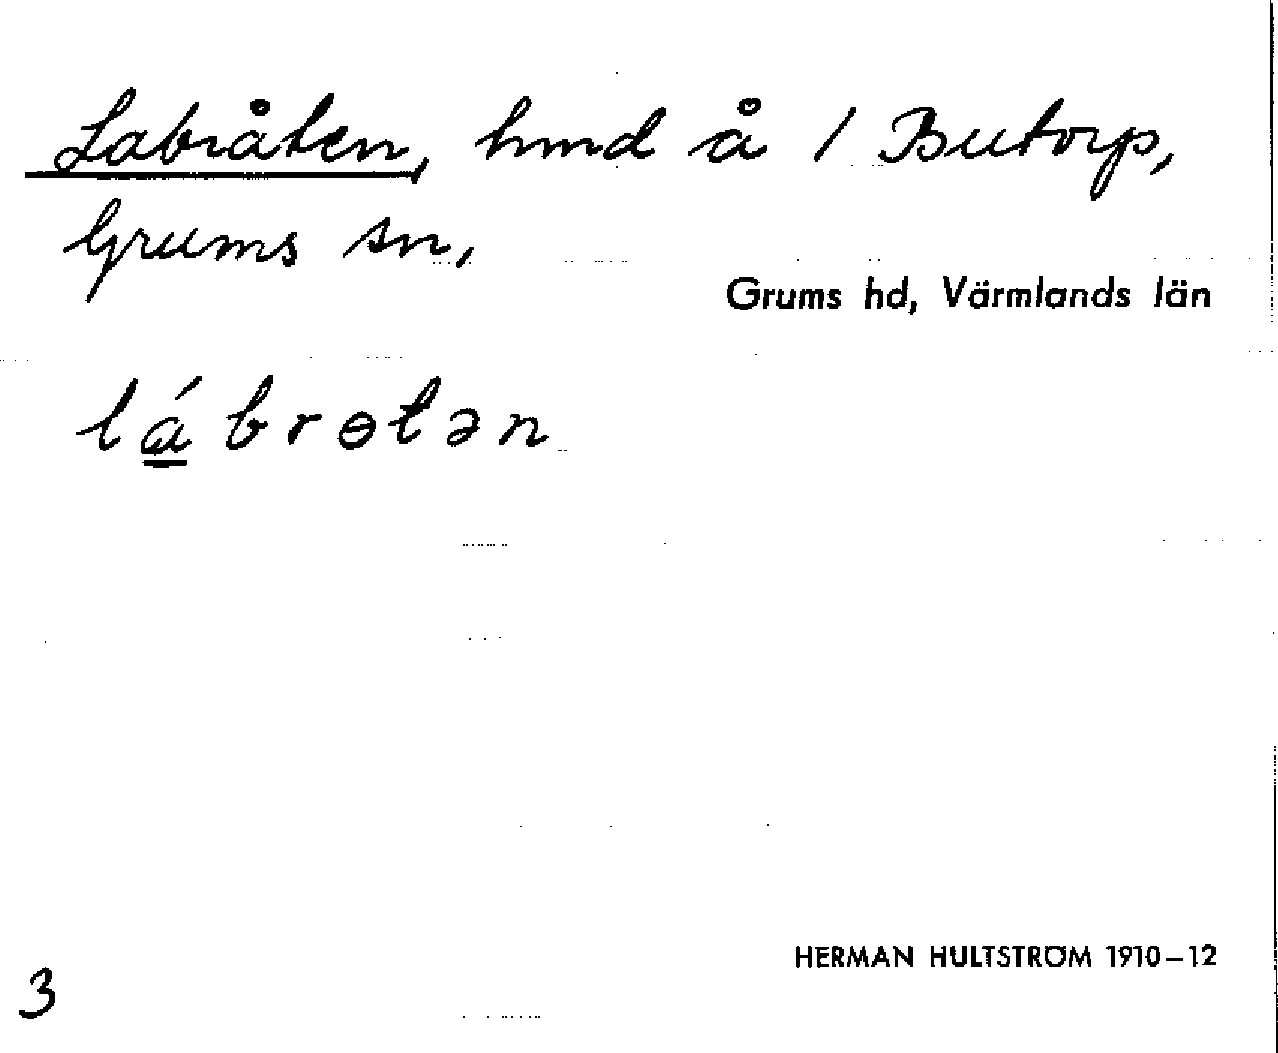 Labråten, hmd å / Butorp,
Grums sn,
Grums hd, Värmlands län
lábrɵtən
3
HERMAN HULTSTRÖM 1910–12